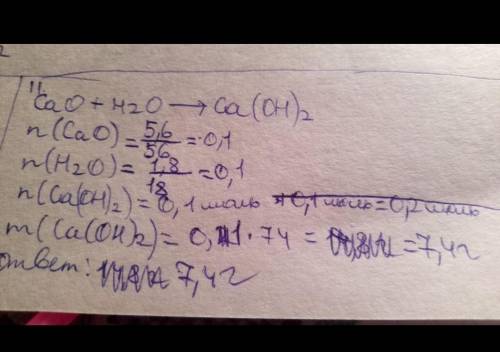 11
CaO + H2O → Ca(OH)2
n(CaO) = 5,6/56 = 0,1
n(H2O) = 1,8/18 = 0,1
n(Ca(OH)2) = 0,1 моль + 0,1 моль = 0,2 моль
m(Ca(OH)2) = 0,1 · 74 = = 7,4г
ответ: 7,4г